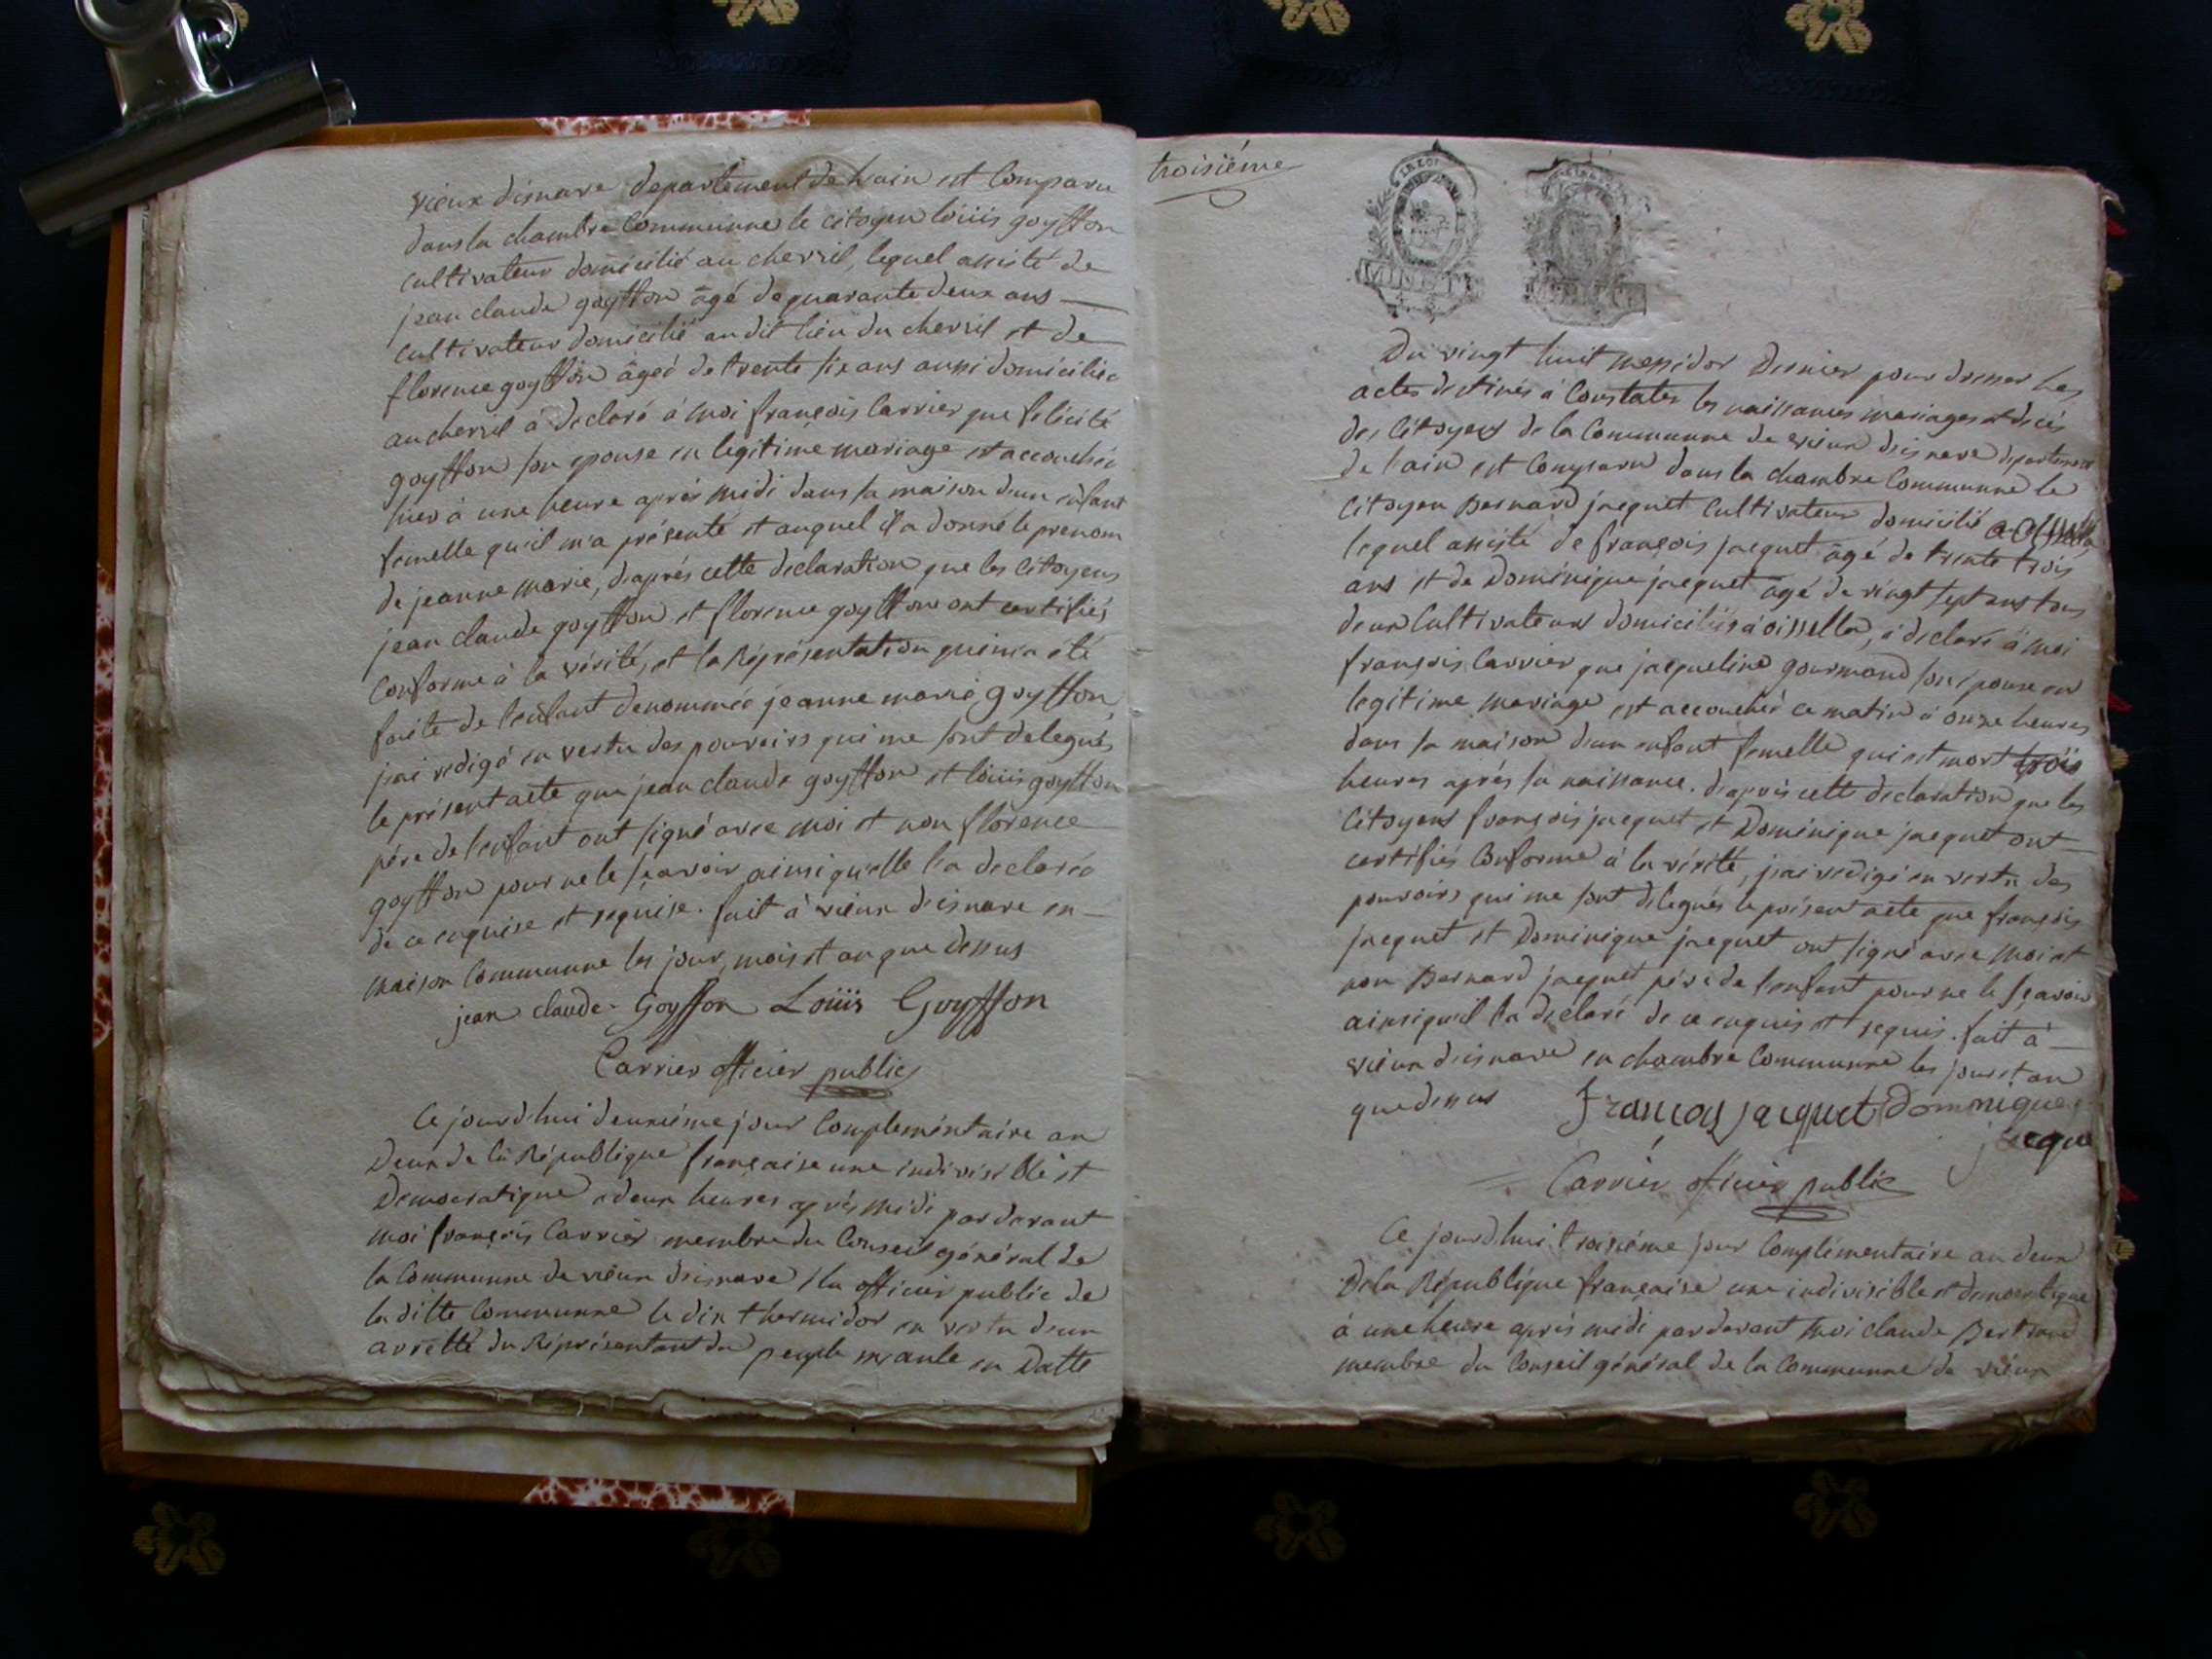 vieux disnave departement de l'ain est Comparu
dans la chambre Communne le citoyen loüis goyffon
cultivateur domicilié au chevril, lequel assisté de
jean claude goyffon âgé de quarante deux ans —
cultivateur domicilié au dit lieu du chevril et de
florence goyffon âgéé de trente six ans aussi domiciliée
au chevril à declaré à moi françois Carrier que felicité
goyffon son epouse en legitime mariage est accouchée
hier à une heure aprés midi dans sa maison d'un enfant
femelle qu'il m'a présenté et auquel il a donné le prenom
de jeanne marie, d'aprés cette declaration que les Citoyens
jean claude goyffon et florence goyffon ont certifiés
Conforme à la vérité, et la Réprésentation qui m'a été
faite de l'enfant denommée jeanne marie goyffon,
j'ai redigé en vertu des pouvoirs qui me sont delegués
le présent acte que jean claude goyffon et loüis goyffon
pére de l'enfant ont signé avec moi et non florence
goyffon pour ne le sçavoir ainsi qu'elle l'a declarée
de ce enquise et requise. fait à vieux d'isnave en —
maison Communne les jour, mois et an que dessus
jean claude Goyffon Loüis Goyffon
Carrier officier public
Ce jourd'hui deuxiéme jour Complémentaire an
Deux de la République française une indivisible et
Democratique a deux heures aprés midi pardevant
moi françois Carrier membre du Conseil général de
la Communne de vieux disnave élu officier public de
la ditte Communne le dix thermidor en vertu d'un
arretté du Réprésentant du peuple méaule en Datte
troisiéme
Du vingt huit messidor Dernier pour dresser les
actes destinés à Constater les naissances mariages et décés
des Citoyens de la Communne de vieux disnave departement
de l'ain est Comparu dans la chambre Communne le
Citoyen Bernard jacquet Cultivateur domicilié a oisselle
lequel assisté de françois jacquet âgé de trente trois
ans et de Dominique jacquet âgé de vingt sept ans tous
deux Cultivateurs domiciliés à oisselle, à declaré à moi
françois Carrier que jacqueline gourmand son epouse en
legitime mariage est accouchée ce matin à onze heures
dans sa maison d'un enfant femelle qui est mort trois
heures aprés sa naissance. d'aprés cette declaration que les
Citoyens françois jacquet et Dominique jacquet ont —
certifiés Conforme à la vérité, j'ai redigé en vertu des
pouvoirs qui me sont delegués le présent acte que françois
jacquet et Dominique jacquet ont signé avec moi et
non Bernard jacquet pére de l'enfant pour ne le sçavoir
ainsi qu'il l'a declaré de ce enquis et requis. fait à —
vieux d'isnave en chambre Communne les jour et an
que dessus François jacquet Dominique
jacque
Carrier officier public
Ce jourd'hui troisiéme jour Complémentaire an deux
De la République française une indivisible et democratique
à une heure aprés midi pardevant moi claude Bertrand
membre du Conseil général de la Communne de vieux